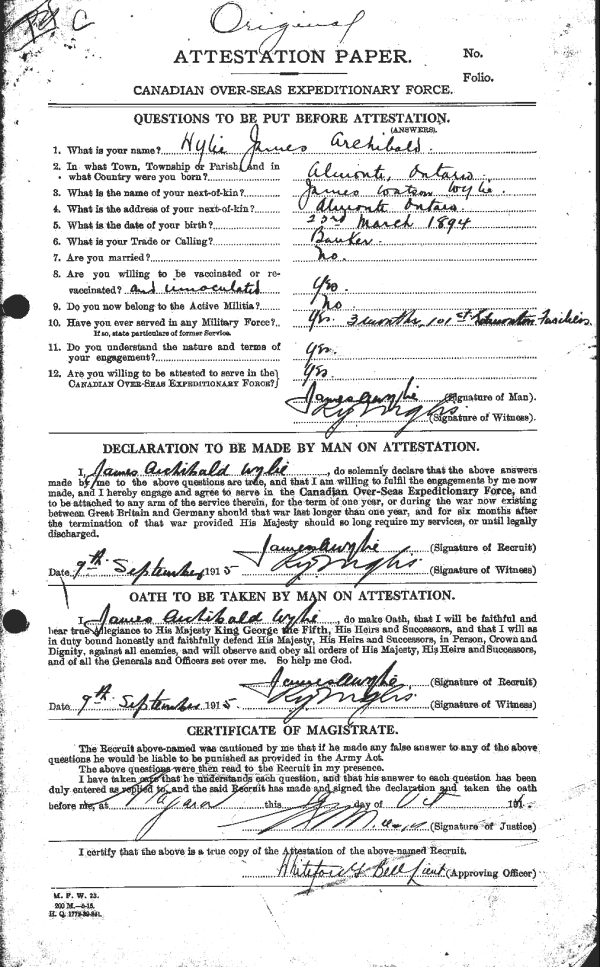 Original
C
ATTESTATION PAPER.
No.
Folio.
CANADIAN OVER-SEAS EXPEDITIONARY FORCE.
QUESTIONS TO BE PUT BEFORE ATTESTATION.
(ANSWERS).
1. What is your name? Wylie James Archibald.
2. In what Town, Township or Parish, and in
what Country were you born? Almonte, Ontario.
3. What is the name of your next-of-kin? James Watson Wylie.
4. What is the address of your next-of-kin? Almonte Ontario.
5. What is the date of your birth? 23rd March 1894
6. What is your Trade or Calling? Banker.
7. Are you married? No.
8. Are you willing to be vaccinated or re-
vaccinated? and innoculated Yes.
9. Do you now belong to the Active Militia? No
10. Have you ever served in any Military Force? Yes. 3 months, 101st Edmonton Fusiliers.
If so, state particulars of former Service.
11. Do you understand the nature and terms of
your engagement? Yes.
12. Are you willing to be attested to serve in the
CANADIAN OVER-SEAS EXPEDITIONARY FORCE? Yes.
James A Wylie (Signature of Man).
(Signature of Witness).
DECLARATION TO BE MADE BY MAN ON ATTESTATION.
I, James Archibald Wylie, do solemnly declare that the above answers
made by me to the above questions are true, and that I am willing to fulfil the engagements by me now
made, and I hereby engage and agree to serve in the Canadian Over-Seas Expeditionary Force, and
to be attached to any arm of the service therein, for the term of one year, or during the war now existing
between Great Britain and Germany should that war last longer than one year, and for six months after
the termination of that war provided His Majesty should so long require my services, or until legally
discharged.
James A Wylie (Signature of Recruit)
Date 9th September 1915 (Signature of Witness)
OATH TO BE TAKEN BY MAN ON ATTESTATION.
I, James Archibald Wylie, do make Oath, that I will be faithful and
bear true Allegiance to His Majesty King George the Fifth, His Heirs and Successors, and that I will as
in duty bound honestly and faithfully defend His Majesty, His Heirs and Successors, in Person, Crown and
Dignity, against all enemies, and will observe and obey all orders of His Majesty, His Heirs and Successors,
and of all the Generals and Officers set over me. So help me God.
James A Wylie (Signature of Recruit)
Date 9th September 1915. (Signature of Witness)
CERTIFICATE OF MAGISTRATE.
The Recruit above-named was cautioned by me that if he made any false answer to any of the above
questions he would be liable to be punished as provided in the Army Act.
The above questions were then read to the Recruit in my presence.
I have taken care that he understands each question, and that his answer to each question has been
duly entered as replied to, and the said Recruit has made and signed the declaration and taken the oath
before me, at Niagara this day of Oct 191
(Signature of Justice)
I certify that the above is a true copy of the Attestation of the above-named Recruit.
Bell Lieut (Approving Officer)
M. F. W. 23.
200 M.—8-15.
H. Q. 1772-39-841.